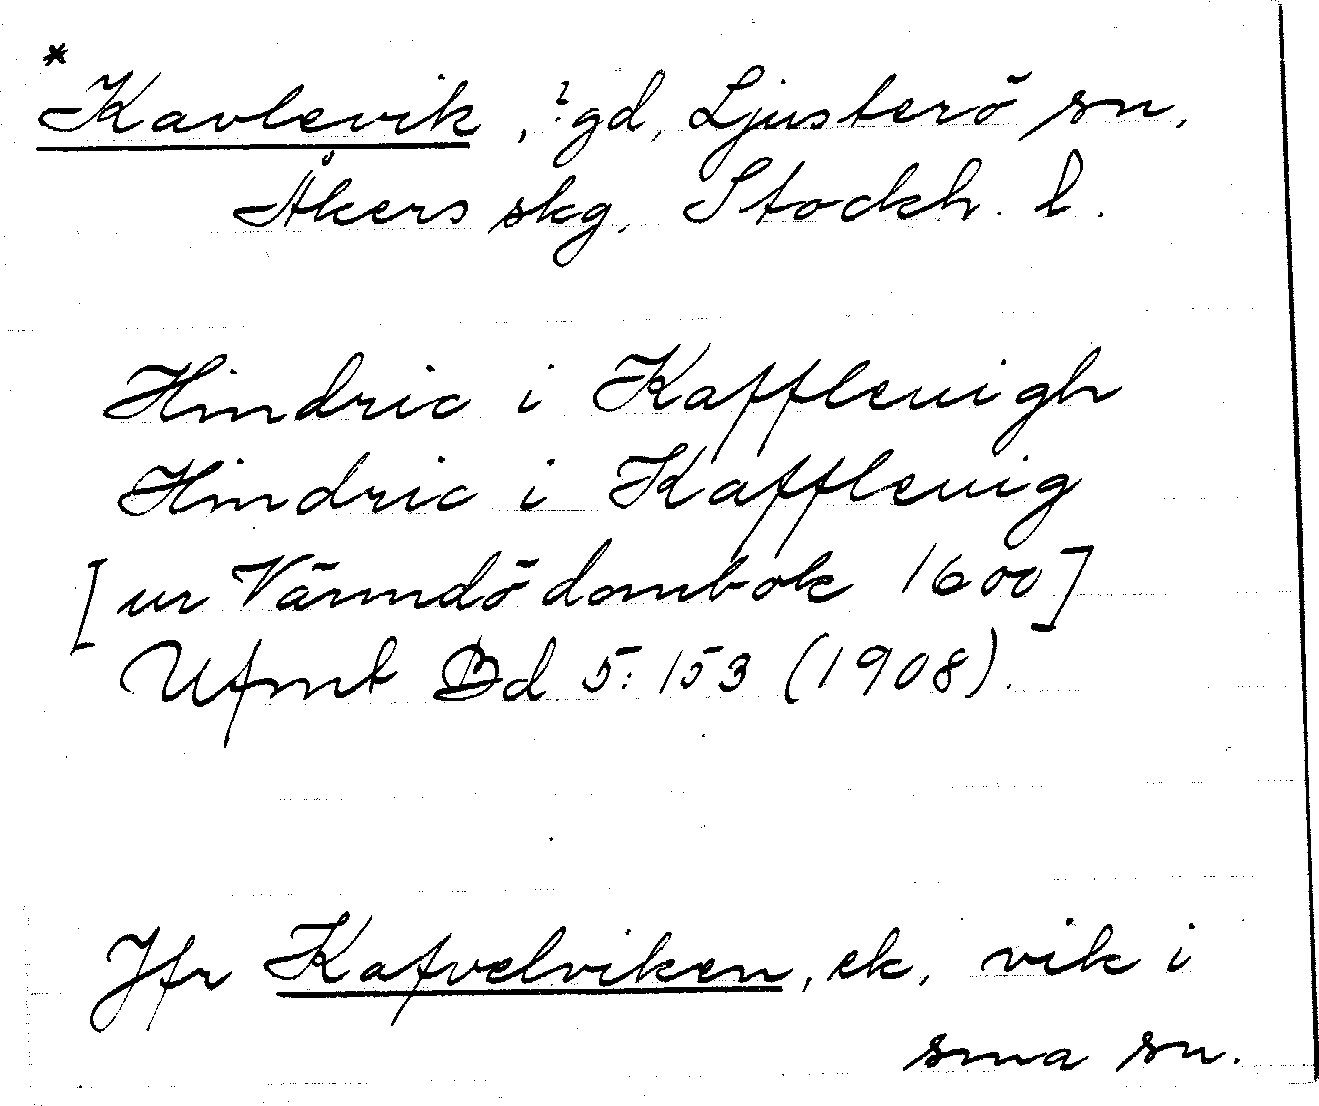 *
Kavlevik, ?gd, Ljusterö sn,
Åkers skg, Stockh. l.
Hindric i Kafflevigh
Hindric i Kafflevig
[ur Värmdö dombok 1600]
Ufmt Bd 5: 153 (1908).
Jfr Kafvelviken, ek, vik i
sma sn.